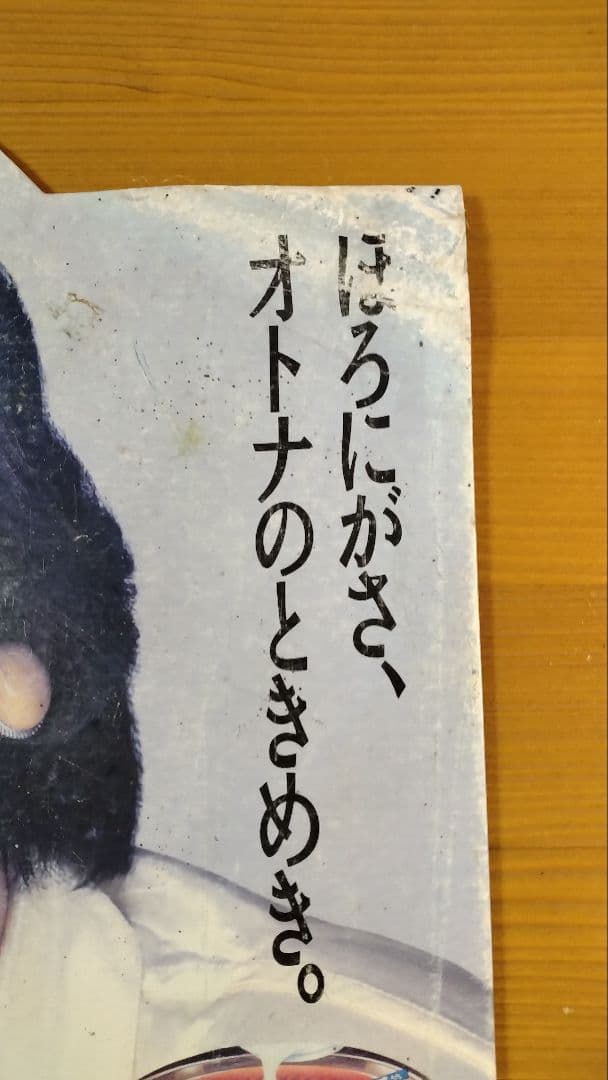 ほろにがさ、
オトナのときめき。